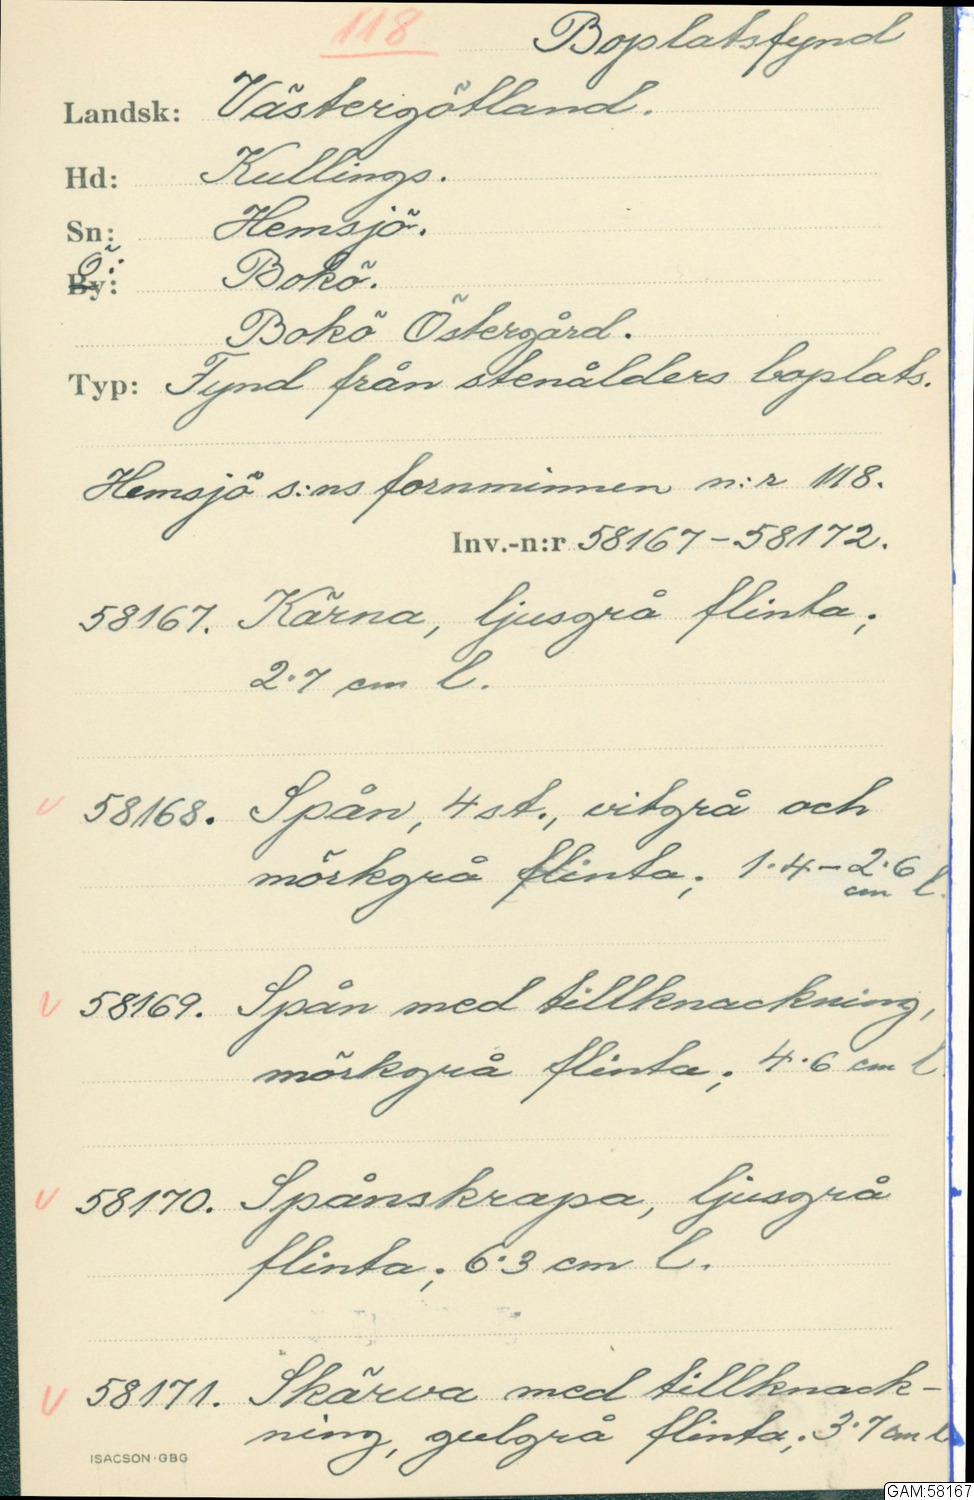 118 Boplatsfynd
Landsk: Västergötland.
Hd: Kullings.
Sn: Hemsjö.
By: Ö: Bokö.
Bokö Östergård.
Typ: Fynd från stenålders boplats.
Hemsjö s:ns fornminnen n:r 118.
Inv.-n:r 58167-58172.
58167. Kärna, ljusgrå flinta;
2·7 cm l.
v 58168. Spån, 4 st., vitgrå och
mörkgrå flinta; 1·4-2·6
cm l.
v 58169. Spån med tillknackning,
mörkgrå flinta; 4·6 cm l
v 58170. Spånskrapa, ljusgrå
flinta; 6·3 cm l.
v 58171. Skärva med tillknack-
ning, gulgrå flinta; 3·7 cm l
ISACSON·GBG
GAM:58167